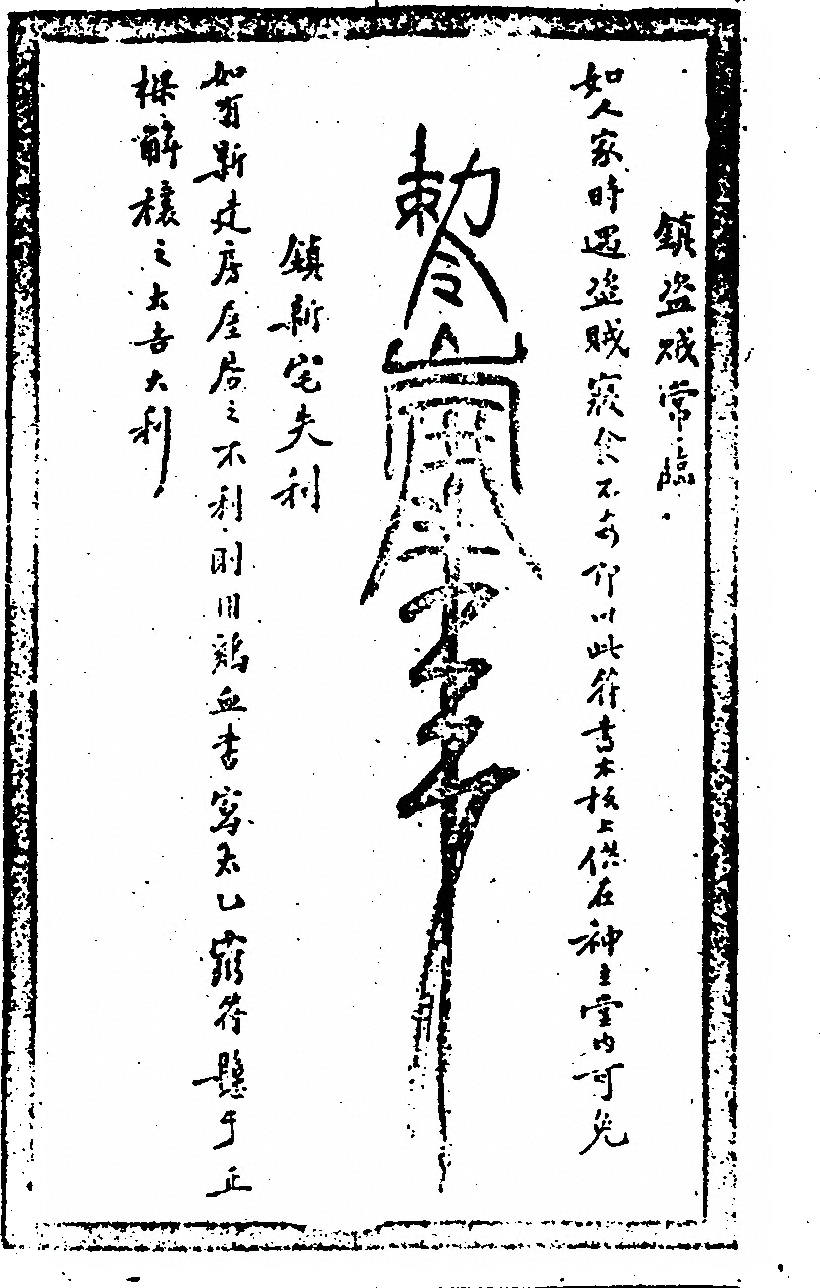 鎮盗賊常臨
如人家時遇盗賊寢食不安卽以此符書木板上供在神主堂内可免
勅令
鎮新宅失利
如有新建房屋居之不利則用鷄血書寫太乙符懸于正
樑解穰之大吉大利